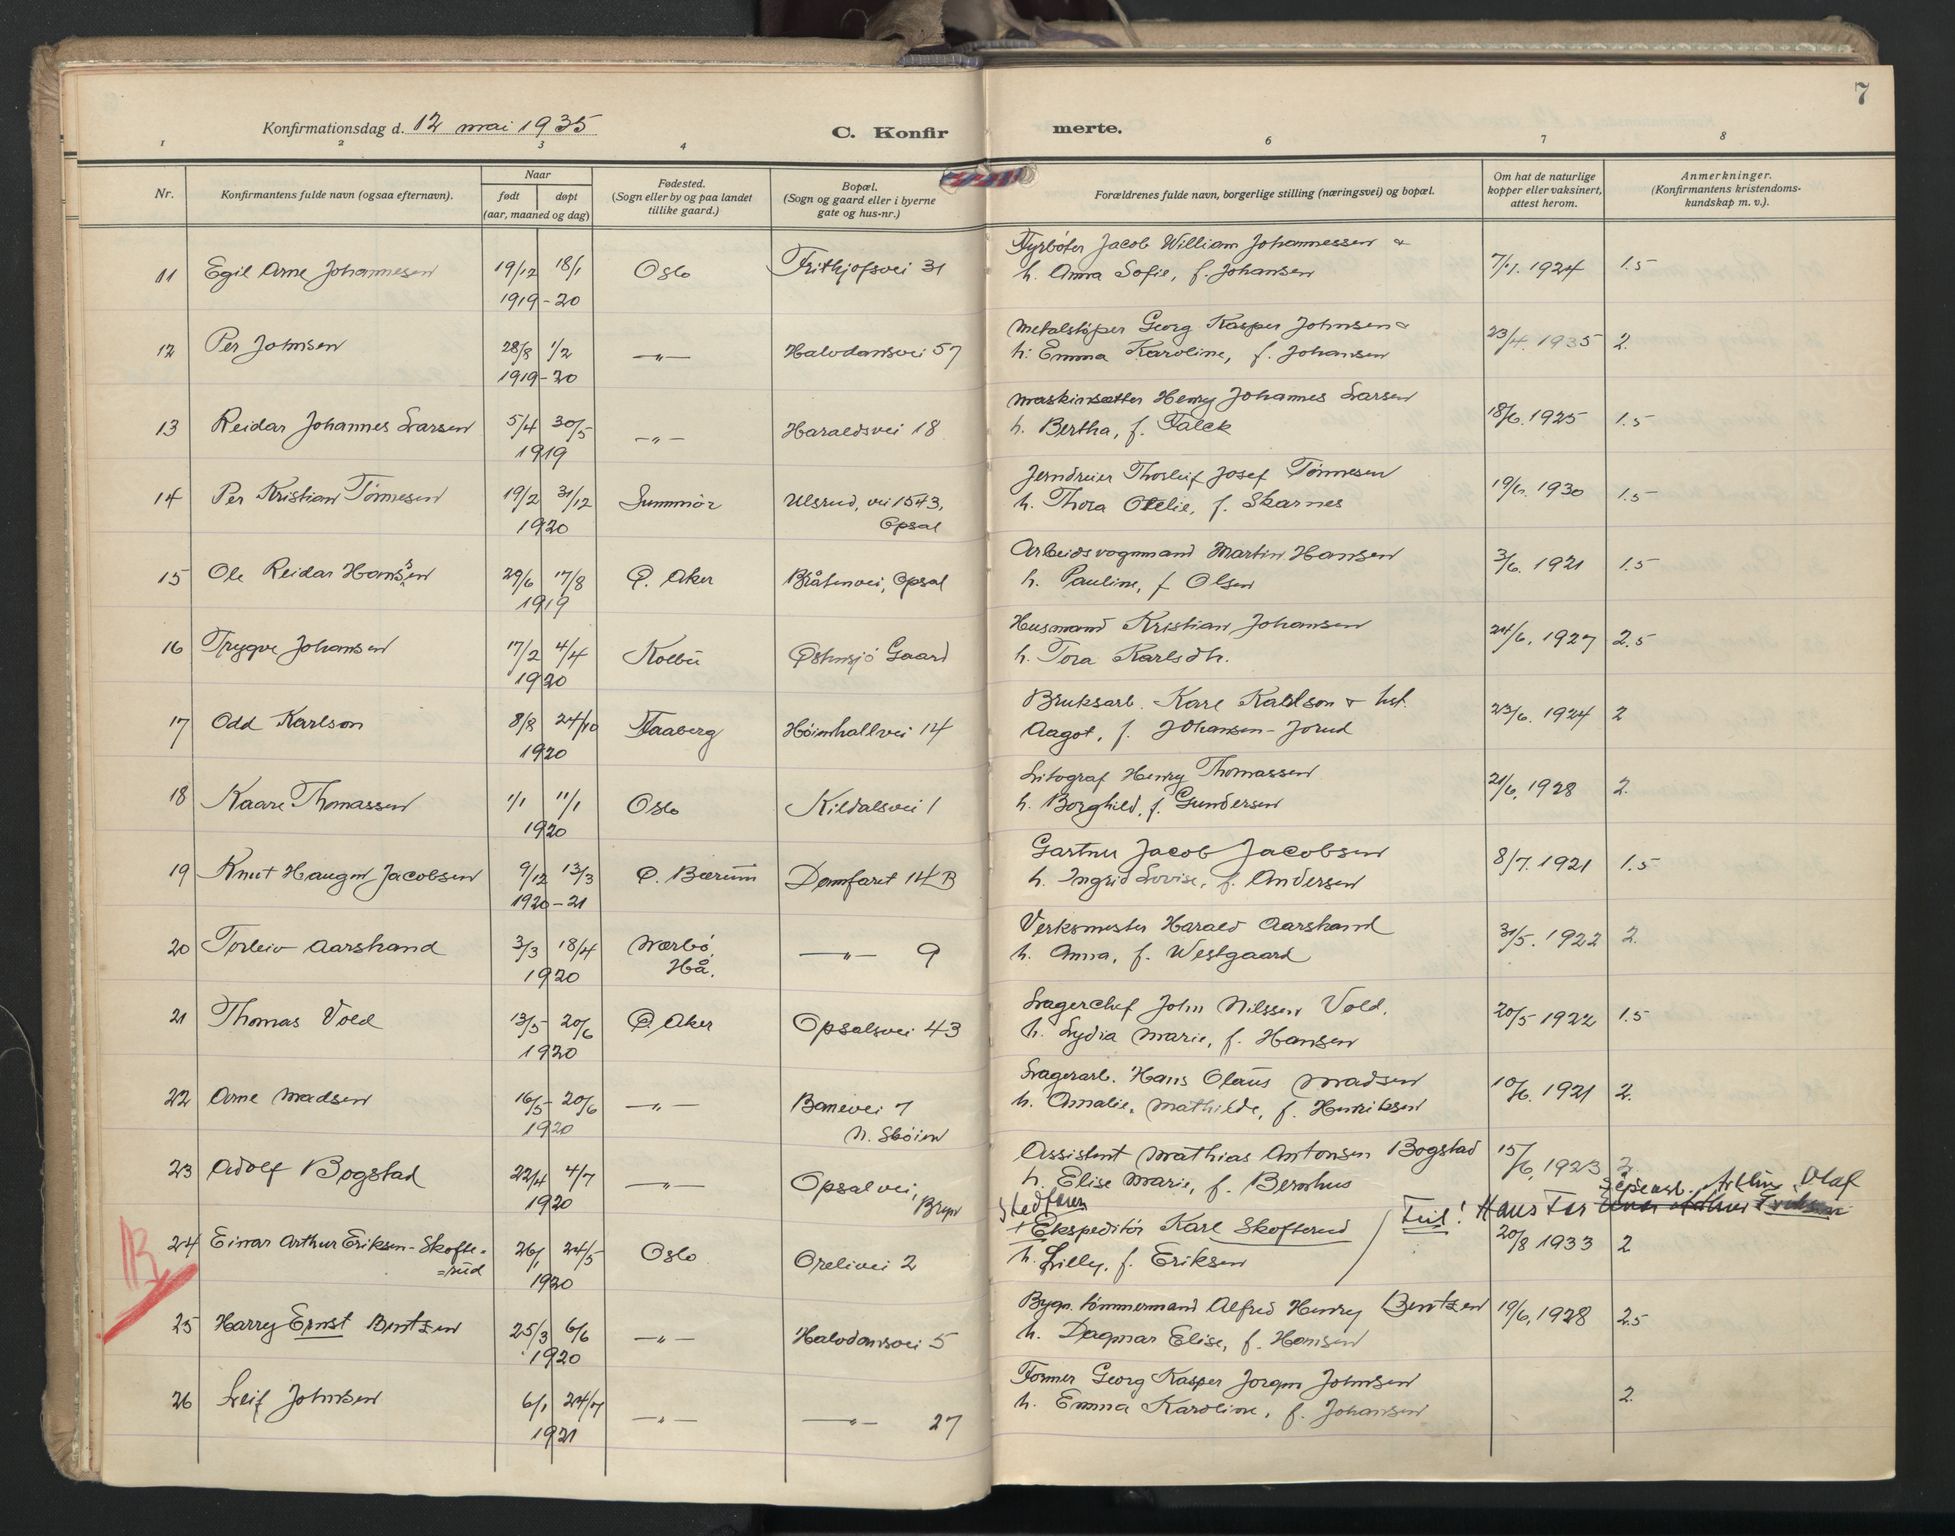 7
Konfirmationsdag d. 12 mai 1935
C. Konfir merte.
1 2 3 4 6 7 8
Nr. Konfirmantens fulde navn (ogsaa efternavn). Naar født døpt (aar, maaned og dag) Fødested. (Sogn eller by og paa landet tillike gaard.) Bopæl. (Sogn og gaard eller i byerne gate og hus-nr.) Forældrenes fulde navn, borgerlige stilling (næringsvei) og bopæl. Om hat de naturlige kopper eller vaksinert, attest herom. Anmerkninger. (Konfirmantens kristendoms-kundskap m. v.).
Fyrbøter Jacob William Johannessen &
11 Egil Arne Johannesen 19/12 18/1 Oslo Frithjofsvei 31 h. Anna Sofie, f. Johansen 7/11. 1924 1.5
1919-20
Metalstøper Georg Kasper Johnsen &
12 Per Johnsen 28/8 1/2 —„— Halvdansvei 57 h. Emma Karoline, f. Johansen 23/4. 1935 2.
1919-20
Maskinsetter Henry Johannes Larsen
13 Reidar Johannes Larsen 5/4 30/5 —„— Haraldsvei 18 h. Bertha, f. Falck 18/6. 1925 1.5
1919
Jerndreier Thorleif Josef Tønnesen
14 Per Kristian Tønnesen 19/2 31/12 Ulsrud, vei 1543, h. Thora Otelie, f. Skarnes 19/6. 1930 1.5
1920 Opsal
Arbeidsvognmand Martin Hansen
15 Ole Reidar Hansen 29/6 17/8 Ø. Aker Bråtenvei, Opsal h. Pauline, f Olsen 3/6. 1921 1.5
1919
Husmand Kristian Johansen
16 Trygve Johansen 17/2 4/4 Kolbu Østensjö Gaard h. Tora Karlsdtr. 24/6. 1927 2.5
1920
Bruksarb. Kare Karlson & hst.
17 Odd Karlson 8/8 24/10 Faaberg Høimhallvei 14 Aagot, f. Johansen-Jorud 23/6. 1924 2
1920
Litograf Henry Thomassen
18 Kaare Thomassen 1/1 11/1 Oslo Kildalsvei 1 h. Borghild, f. Gundersen 21/6. 1928 2.
1920
Gartner Jacob Jacobsen
19 Knut Haugen Jacobsen 9/12 13/3 Ø. Bærum Damfaret 14 B h. Ingrid Lovise, f. Andersen 8/7. 1921 1.5
1920-21
Verksmester Harald Aarstrand
20 Torleiv Aarstrand 3/3 18/4 Nærbø, —„— 9 h. Anna, f. Westgaard 31/5. 1922 2.
1920 Hå.
Lagerchef John Nilssen Vold.
21 Thomas Vold 13/5 20/6 Ø. Aker Opsalsvei 43 h. Lydia Marie, f. Hansen 20/5 1922 1.5
1920
Lagerarb. Hans Olaus Madsen
22 Arne Madsen 16/5 20/6 —„— Banevei 7 h. Amalie, Mathilde, f. Henriksen 10/6. 1921 2.
1920 N. Skøien
Assistent Mathias Antonsen Bogstad
23 Adolf Bogstad 22/4 4/7 —„— Opsalvei, Bryn h. Elise Marie, f. Bernhus 15/6, 1923 2.
1920
Stedfaren / Feil! Hans Far Arthur Olaf
+ Ekspeditør Karl Skofterud
24 Einar Arthur Eriksen-Skofte= 26/1 24/5 Oslo Orelivei 2 h. Lilly, f. Eriksen 20/8 1933 2
=rud 1920
Bygn. tømmermand Alfred Henry Bentzen
25 Harry Ernst Bentzen 25/3 6/6 —„— Halvdansvei 5 h. Dagmar Elise, f. Hansen 19/6, 1928 2.5
1920
Former Georg Kasper Jorgen Johnsen
26 Leif Johnsen 6/1 24/7 —„— —„— 27 h. Emma Karoline, f. Johansen 2.
1921